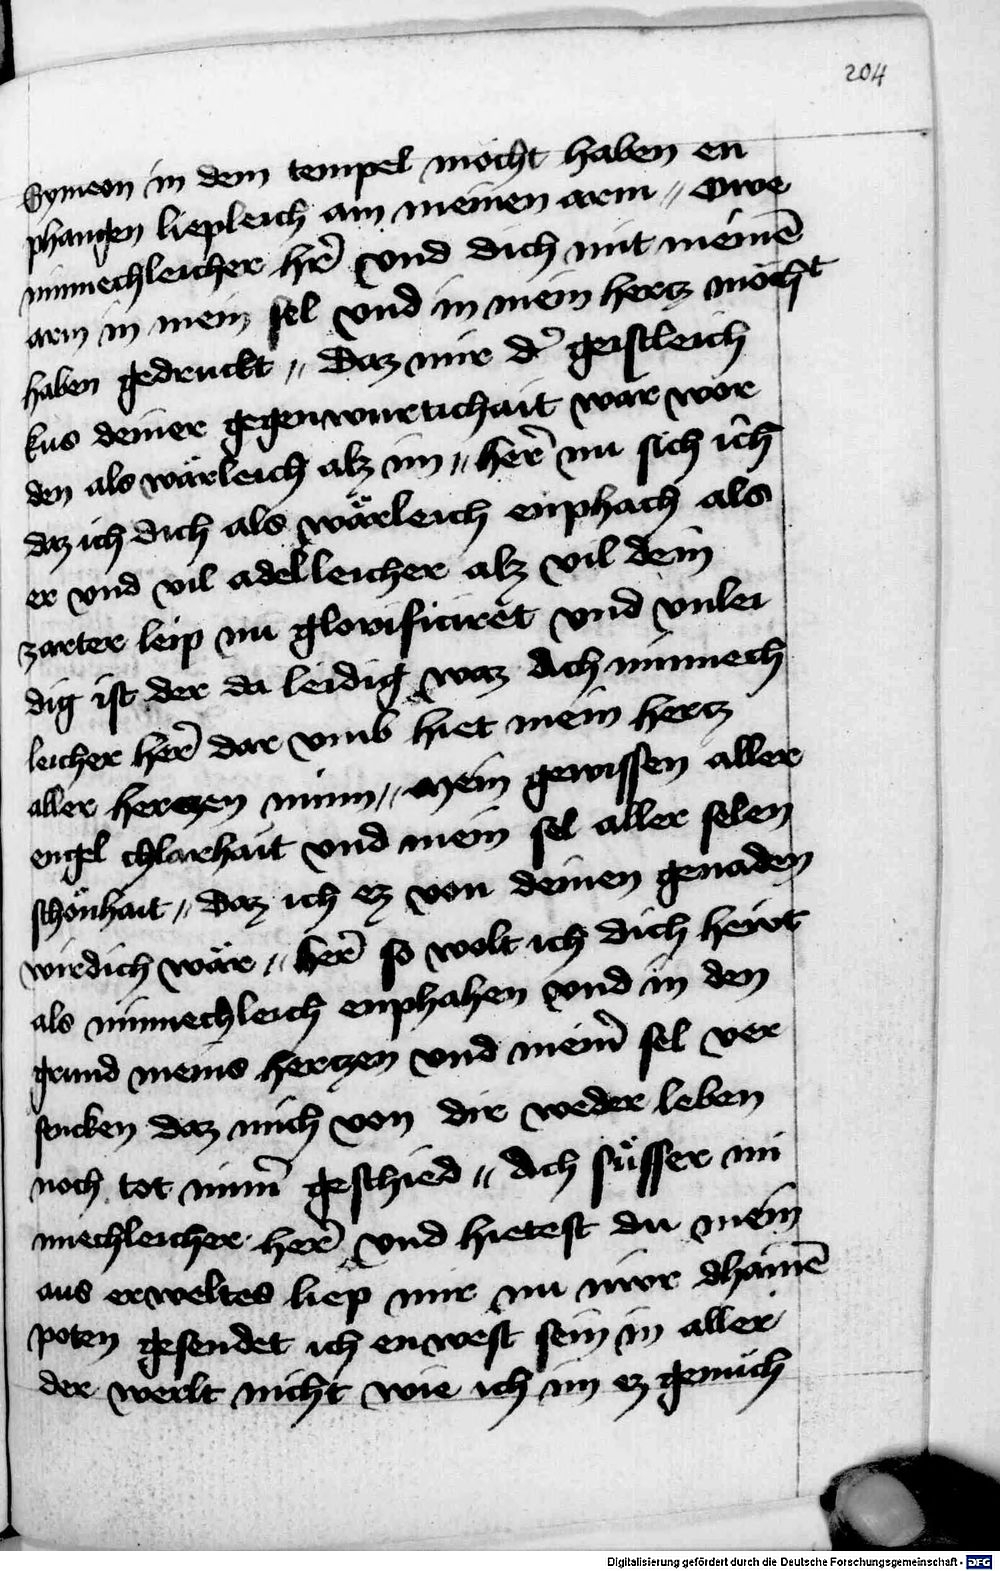 204
Symeon in dem tempel mocht haben en
phangen liepleich am meinen arm // Owe
minnechleicher hr̄ vnd dich mit meinē
arm in mein sel vnd in mein hertz möcht
haben gedruckt // Daz mir d᷑ geistleich
kus deiner gegenwurtichait war wor
den als wärleich alz im // her̄ nu sich ich
daz ich dich als wärleich enphach als
er vnd vil adelleicher alz vil dein
zarter leip nu glorificiret vnd vnlei
dig ist der da leidig waz Ach minnech
leicher her̄ dar vmb hiet mein hertz
aller hertzen minn // Mein gewissen aller
engel chlarhait vnd mein sel aller selen
schönhait // Daz ich ez von deinen genaden
wirdich wär // her̄ so wolt ich dich hewt
als minnechleich enphahen vnd in den
grund meins hertzen vnd meinr̄ sel ver
sencken daz mich von dir weder leben
noch tot nimm̄ geschied // Ach süsser mi
nnechleicher her̄ vnd hietest du mein
aus erweltes liep mir nu nwr dhainē
poten gesendet ich enwest sein in aller
der werlt nicht wie ich im ez genuch
Digitalisierung gefördert durch die Deutsche Forschungsgemeinschaft - DFG